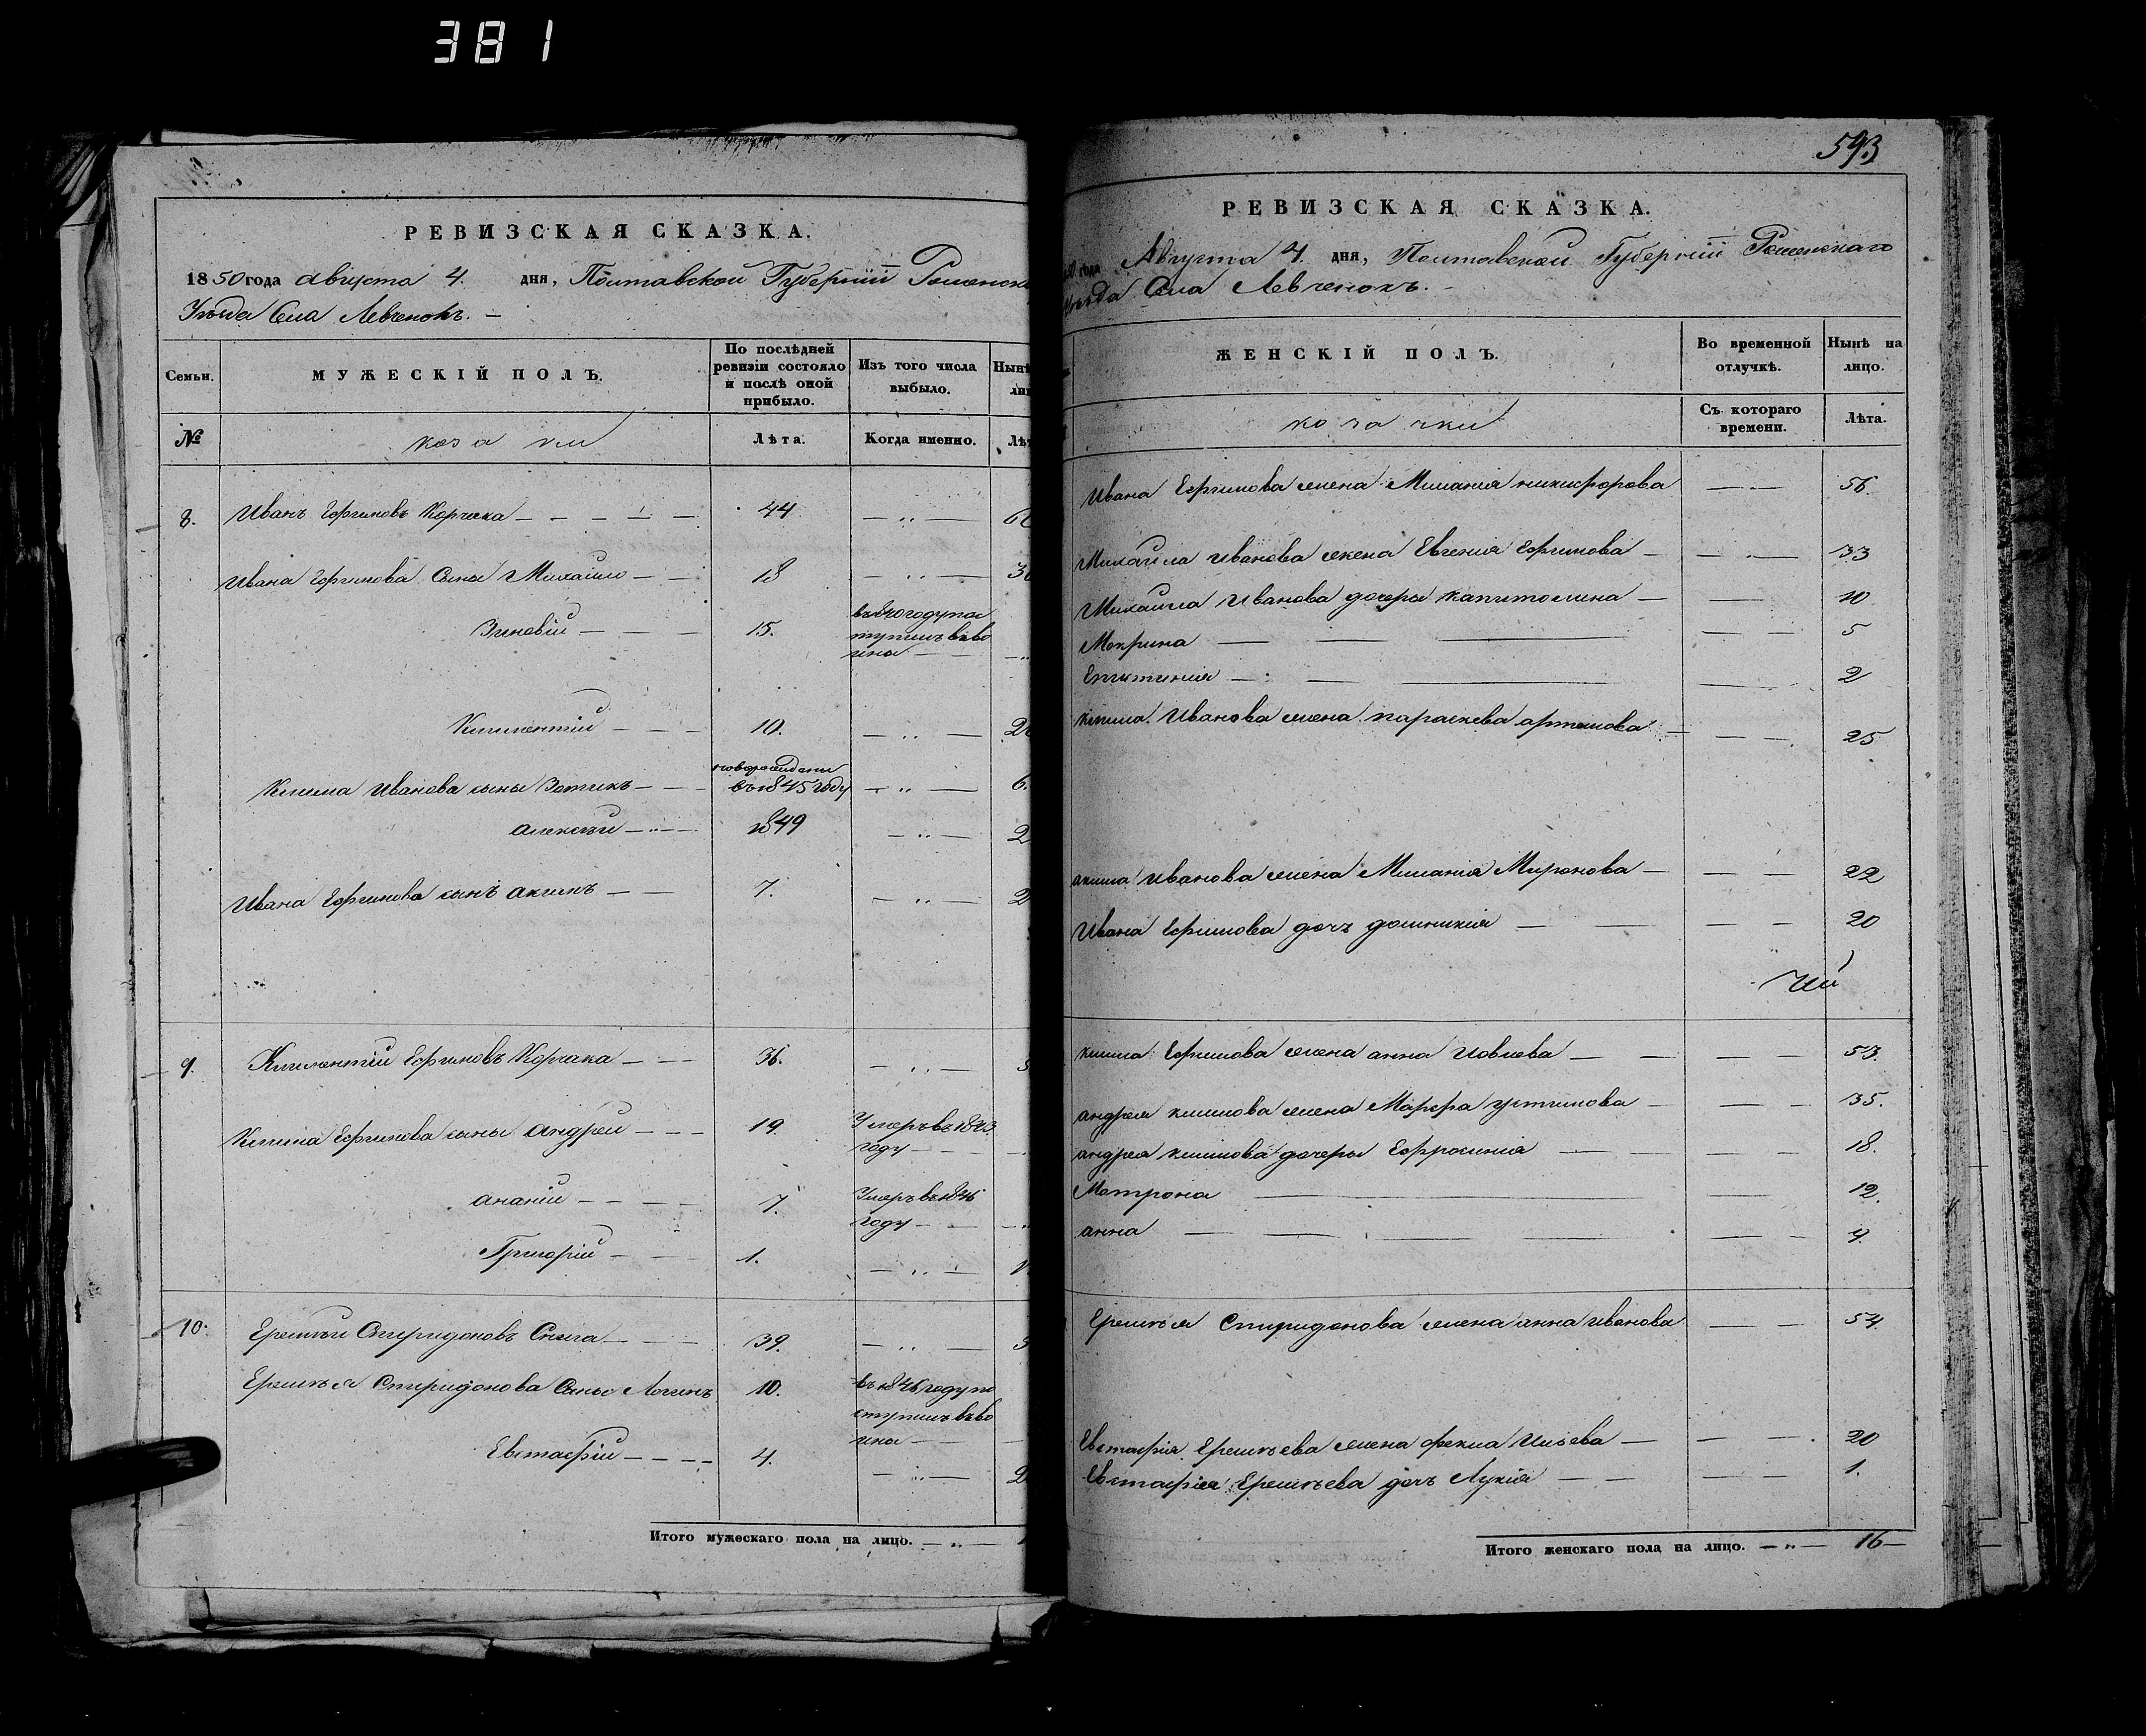 381
РЕВИЗСКАЯ СКАЗКА.
1850 года Августа 4. дня, Полтавской Губерніи Роменска
Уѣзда Села Левченокъ. —
Семьи.
МУЖЕСКІЙ ПОЛЪ.
По послѣдней ревизіи состояло и послѣ оной прибыло.
Изъ того числа выбыло.
Нынѣ
№
козаки
Лѣта.
Когда именно.
8. Иванъ Ефимовъ Корчака — 44 — „ —
Ивана Ефимова Сыны Михаило — 18 — „ — 3
Зиновій — 15. въ 1840 году пос
тупилъ въ во
ины —
Климентій — 10. — „ — 2
новорожденъ
Клима Иванова сыны Зотикъ — въ 1845 году — „ — 6.
Алексѣй — 1849 — „ — 2
Ивана Ефимова сынъ Акимъ — 7. — „ — 2
9. Климентій Ефимовъ Корчака — 36. — „ —
Клима Ефимова сыны Андрей — 19. Умеръ въ 1843
году —
Ананій — 7. Умеръ въ 1846
году —
Григорій — 1. — „ —
10. Еремѣй Спиридоновъ Снага — 39. — „ —
Еремѣя Спиридонова Сыны Логинъ 10. въ 1846 году по
ступилъ въ во
ины —
Евстафій — 4. — „ — 2
Итого мужескаго пола на лицо. — „ —
593
РЕВИЗСКАЯ СКАЗКА.
года Августа 4. дня, Полтавской Губерніи Роменскаго
Уѣзда Села Левченокъ. —
ЖЕНСКІЙ ПОЛЪ.
Во временной отлучкѣ.
Нынѣ на лицо.
козачки
Съ котораго времени.
Лѣта.
Ивана Ефимова жена Миланія Никифорова — 56.
Михаила Иванова жена Евгенія Ефимова — 33
Михаила Иванова дочери Капитолина — 10
Макрина — 5
Епистимія — 2
Клима Иванова жена Параскева Артемова — 25
Акима Иванова жена Миланія Миронова — 22
Ивана Ефимова дочь Домникія — 20
Клима Ефимова жена Анна Иовлева — 53.
Андрея Климова жена Марфа Устимова — 35.
Андрея Климова дочери Ефросинія — 18.
Матрона — 12.
Анна — 4.
Еремѣя Спиридонова жена Анна Иванова — 54.
Евстафія Еремѣева жена Фекла Ильева — 20
Евстафія Еремѣева дочь Лукія — 1.
Итого женскаго пола на лицо. — „ — 16 —